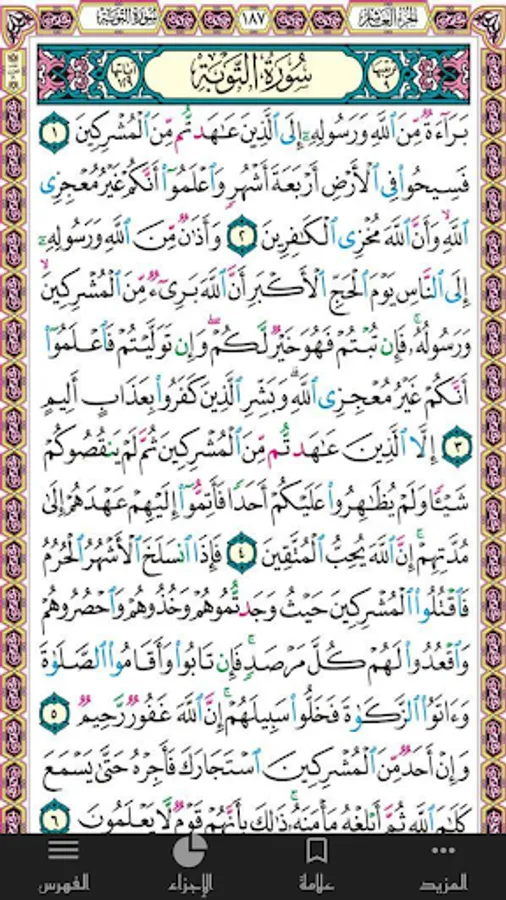 الجزء العاشر ١٨٧ سورة التوبة
ترتيبها ٩ سُورَةُ التَّوْبَةِ آياتها ١٢٩
بَرَآءَةٌ مِّنَ ٱللَّهِ وَرَسُولِهِۦٓ إِلَى ٱلَّذِينَ عَٰهَدتُّم مِّنَ ٱلْمُشْرِكِينَ ١
فَسِيحُوا۟ فِى ٱلْأَرْضِ أَرْبَعَةَ أَشْهُرٍ وَٱعْلَمُوٓا۟ أَنَّكُمْ غَيْرُ مُعْجِزِى
ٱللَّهِ ۙ وَأَنَّ ٱللَّهَ مُخْزِى ٱلْكَٰفِرِينَ ٢ وَأَذَٰنٌ مِّنَ ٱللَّهِ وَرَسُولِهِۦٓ
إِلَى ٱلنَّاسِ يَوْمَ ٱلْحَجِّ ٱلْأَكْبَرِ أَنَّ ٱللَّهَ بَرِىٓءٌ مِّنَ ٱلْمُشْرِكِينَ ۙ
وَرَسُولُهُۥ ۚ فَإِن تُبْتُمْ فَهُوَ خَيْرٌ لَّكُمْ ۖ وَإِن تَوَلَّيْتُمْ فَٱعْلَمُوٓا۟
أَنَّكُمْ غَيْرُ مُعْجِزِى ٱللَّهِ ۗ وَبَشِّرِ ٱلَّذِينَ كَفَرُوا۟ بِعَذَابٍ أَلِيمٍ
٣ إِلَّا ٱلَّذِينَ عَٰهَدتُّم مِّنَ ٱلْمُشْرِكِينَ ثُمَّ لَمْ يَنقُصُوكُمْ
شَيْـًٔا وَلَمْ يُظَٰهِرُوا۟ عَلَيْكُمْ أَحَدًا فَأَتِمُّوٓا۟ إِلَيْهِمْ عَهْدَهُمْ إِلَىٰ
مُدَّتِهِمْ ۚ إِنَّ ٱللَّهَ يُحِبُّ ٱلْمُتَّقِينَ ٤ فَإِذَا ٱنسَلَخَ ٱلْأَشْهُرُ ٱلْحُرُمُ
فَٱقْتُلُوا۟ ٱلْمُشْرِكِينَ حَيْثُ وَجَدتُّمُوهُمْ وَخُذُوهُمْ وَٱحْصُرُوهُمْ
وَٱقْعُدُوا۟ لَهُمْ كُلَّ مَرْصَدٍ ۚ فَإِن تَابُوا۟ وَأَقَامُوا۟ ٱلصَّلَوٰةَ
وَءَاتَوُا۟ ٱلزَّكَوٰةَ فَخَلُّوا۟ سَبِيلَهُمْ ۚ إِنَّ ٱللَّهَ غَفُورٌ رَّحِيمٌ ٥
وَإِنْ أَحَدٌ مِّنَ ٱلْمُشْرِكِينَ ٱسْتَجَارَكَ فَأَجِرْهُ حَتَّىٰ يَسْمَعَ
كَلَٰمَ ٱللَّهِ ثُمَّ أَبْلِغْهُ مَأْمَنَهُۥ ۚ ذَٰلِكَ بِأَنَّهُمْ قَوْمٌ لَّا يَعْلَمُونَ ٦
المزيد علامة الإجزاء الفهرس